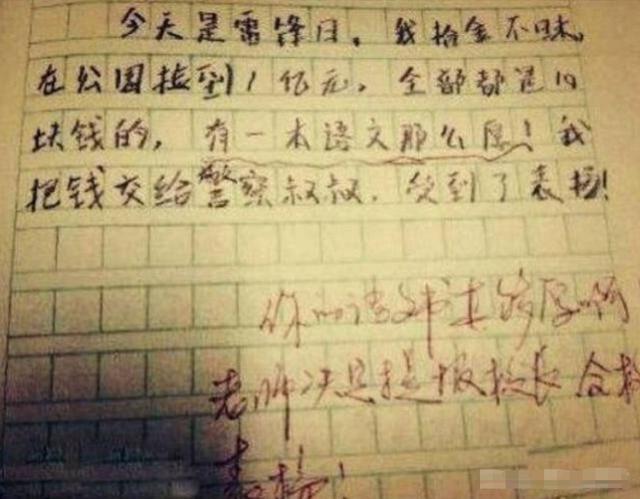 今天是雷锋日，我拾金不昧，
在公园捡到1亿元，全部都是10
块钱的，有一本语文那么厚！我
把钱交给警察叔叔，受到了表扬！
你的语文书真够厚啊
老师决定提报校长 全校
表扬！